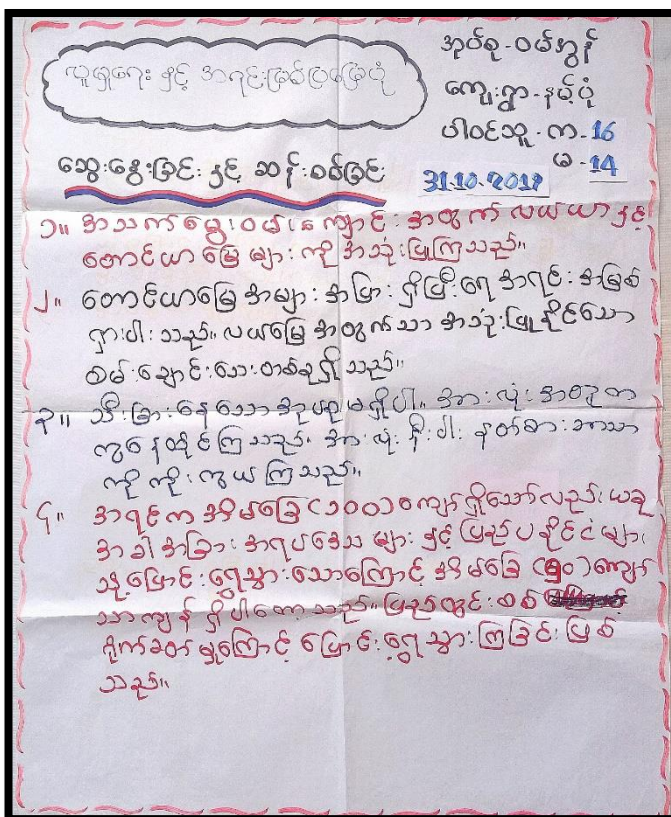 လူမှုရေး နှင့် အရင်းအမြစ်ပြမြေပုံ
အုပ်စု - ဝမ်အွန်
ကျေးရွာ - နမ့်ပုံ
ပါဝင်သူ - က - 16
မ - 14
ဆွေးနွေးခြင်း နှင့် ဆန်းစစ်ခြင်း
31.10.2019
၁။ အသက်မွေးဝမ်းကျောင်း အတွက် လယ်ယာ နှင့်
တောင်ယာမြေ များ ကို အသုံးပြုကြသည်။
၂။ တောင်ယာမြေ အများ အပြား ရှိပြီး ရေ အရင်း အမြစ်
ရှားပါး သည်။ လယ်မြေ အတွက်သာ အသုံး ပြုနိုင်သော
စမ်းချောင်း သေး တစ်ခုရှိ သည်။
၃။ သီးခြား နေသော အုပ်စု မရှိပါ။ အား လုံး အတူတ
ကွနေထိုင်ကြသည်။ အား လုံး နီး ပါး နတ်စား ဘာသာ
ကို ကိုး ကွယ် ကြသည်။
၄။ အရင်က အိမ်ခြေ (၁၀၀) ကျော်ရှိသော်လည်း ယခု
အခါ အခြား အရပ်ဒေသ များ နှင့် ပြည်ပ နိုင်ငံများ
သို့ ပြောင်း ရွှေ့သွားသောကြောင့် အိမ်ခြေ (၅၀) ကျော်
သာကျန် ရှိပါတော့ သည်။ ပြည်တွင်း စစ်
တိုက်ခတ် မှုကြောင့် ပြောင်း ရွှေ့ သွား ကြခြင်း ဖြစ်
သည်။